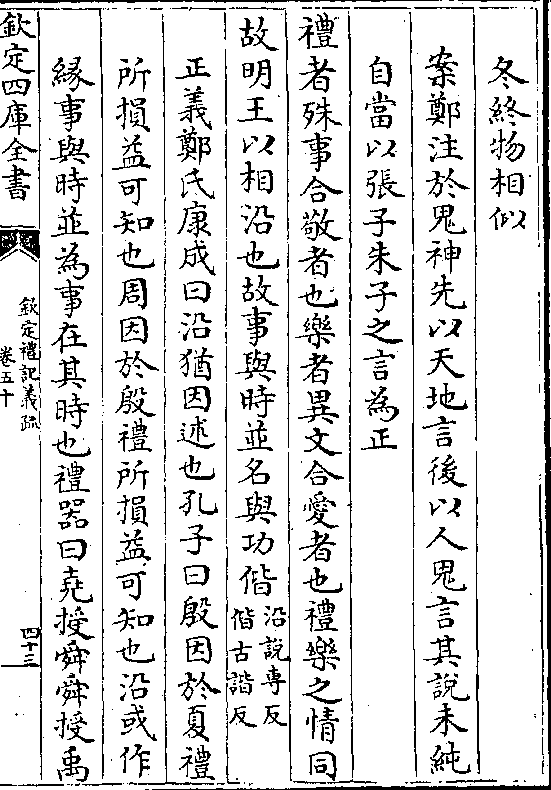 冬終物相似
案鄭注於鬼神先以天地言後以人鬼言其説未純
自當以張子朱子之言為正
禮者殊事合敬者也樂者異文合愛者也禮樂之情同
故明王以相沿也故事與時並名與功偕沿説專反偕古諧反
正義鄭氏康成曰沿猶因述也孔子曰殷因於夏禮
所損益可知也周因於殷禮所損益可知也沿或作
緣事與時並為事在其時也禮器曰堯授舜舜授禹
欽定四庫全書
欽定禮記義疏
卷五十
四十三